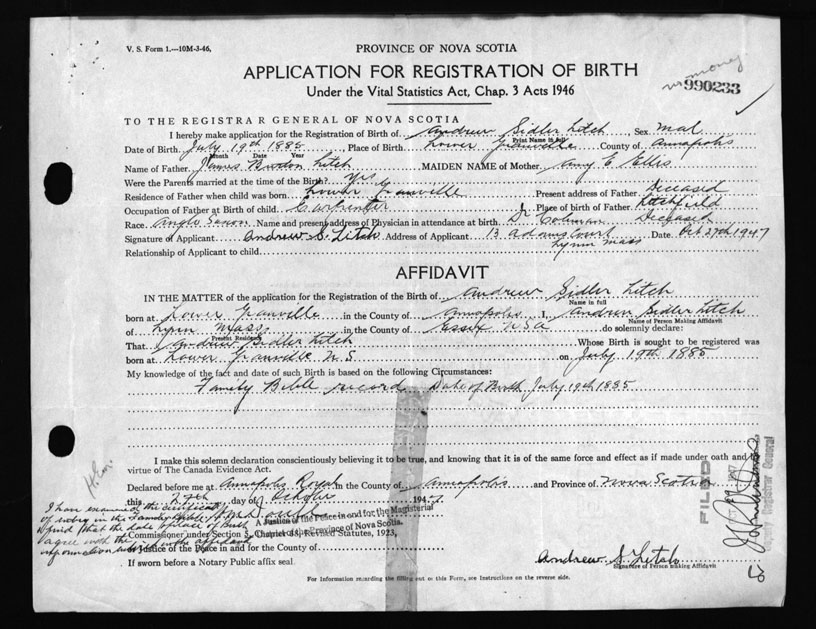 V. S. Form 1.—10M-3-46,
PROVINCE OF NOVA SCOTIA
no money
990233
APPLICATION FOR REGISTRATION OF BIRTH
Under the Vital Statistics Act, Chap. 3 Acts 1946
TO THE REGISTRAR GENERAL OF NOVA SCOTIA
I hereby make application for the Registration of Birth of Andrew Sidler Litch, Sex Mal
Print Name in full
Date of Birth July 19th 1885, Place of Birth Lower Granville County of Annapolis
Month Date Year
Name of Father James Burton Litch MAIDEN NAME of Mother Amy E Ellis
Were the Parents married at the time of the Birth? Yrs
Residence of Father when child was born Lower Granville Present address of Father Deceased
Occupation of Father at Birth of child Carpenter Place of birth of Father Litchfield
Race Anglo Saxon Name and present address of Physician in attendance at birth Dr Coleman Deceased
Signature of Applicant Andrew S. Litch Address of Applicant 13 Adams Court Date Oct 27th 1947
Lynn Mass
Relationship of Applicant to child
AFFIDAVIT
IN THE MATTER of the application for the Registration of Birth of Andrew Sidler Litch
Name in full
born at Lower Granville in the County of Annapolis I, Andrew Sidler Litch
Name of Person Making Affidavit
of Lynn Mass in the County of Essex USA do solemnly declare:
Present Residence
That Andrew Sidler Litch Whose Birth is sought to be registered was
born at Lower Granville N S on July 19th 1885
My knowledge of the fact and date of such Birth is based on the following Circumstances:
Family Bible record Date of Birth July 19th 1885
I make this solemn declaration conscientiously believing it to be true, and knowing that it is of the same force and effect as if made under oath and by
virtue of The Canada Evidence Act.
Declared before me at Annapolis Royal in the County of Annapolis and Province of Nova Scotia
this 27th day of October 1947.
I have examined the
in the Family Bible
find that the date & place of birth
agree with the
information in the affidavit
A Justice of the Peace in and for the Magisterial
of the Province of Nova Scotia.
Commissioner under Section 5, Chapter Revised Statutes, 1923,
or Justice of the Peace in and for the County of
If sworn before a Notary Public affix seal.
Andrew S. Litch
Signature of Person making Affidavit
For Information regarding the filling out of this Form, see Instructions on the reverse side.
FILED
Deputy Registrar General